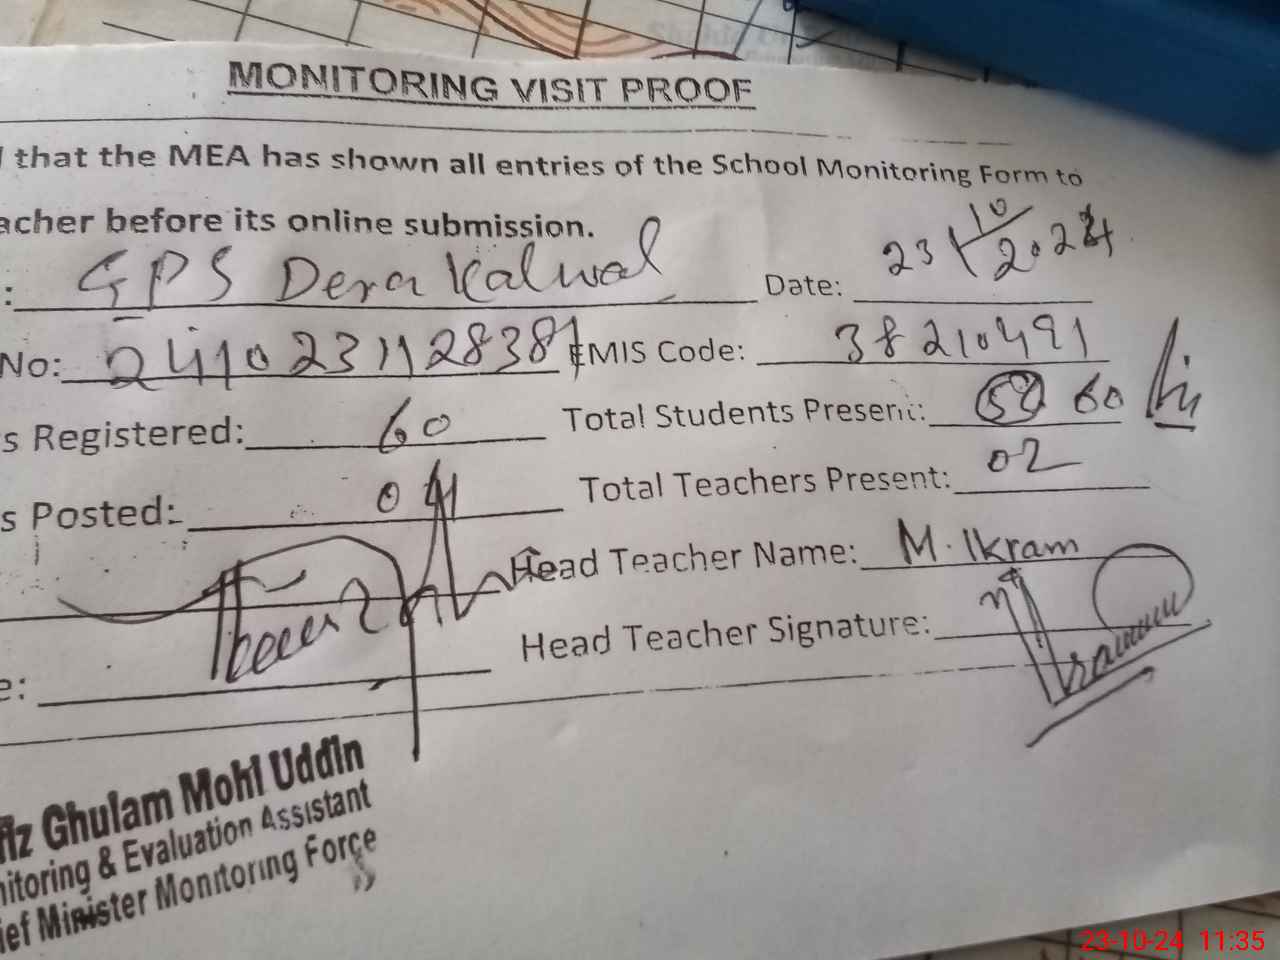 MONITORING VISIT PROOF
that the MEA has shown all entries of the School Monitoring Form to
acher before its online submission.
: GPS Dera Kalwal Date: 23/10/2024
No: 241023112838 EMIS Code: 38210491
s Registered: 60 Total Students Present: 60
s Posted: 04 Total Teachers Present: 02
Head Teacher Name: M. Ikram
e: Head Teacher Signature: M Ikram
fiz Ghulam Mohi Uddin
nitoring & Evaluation Assistant
ief Minister Monitoring Force
23-10-24 11:35